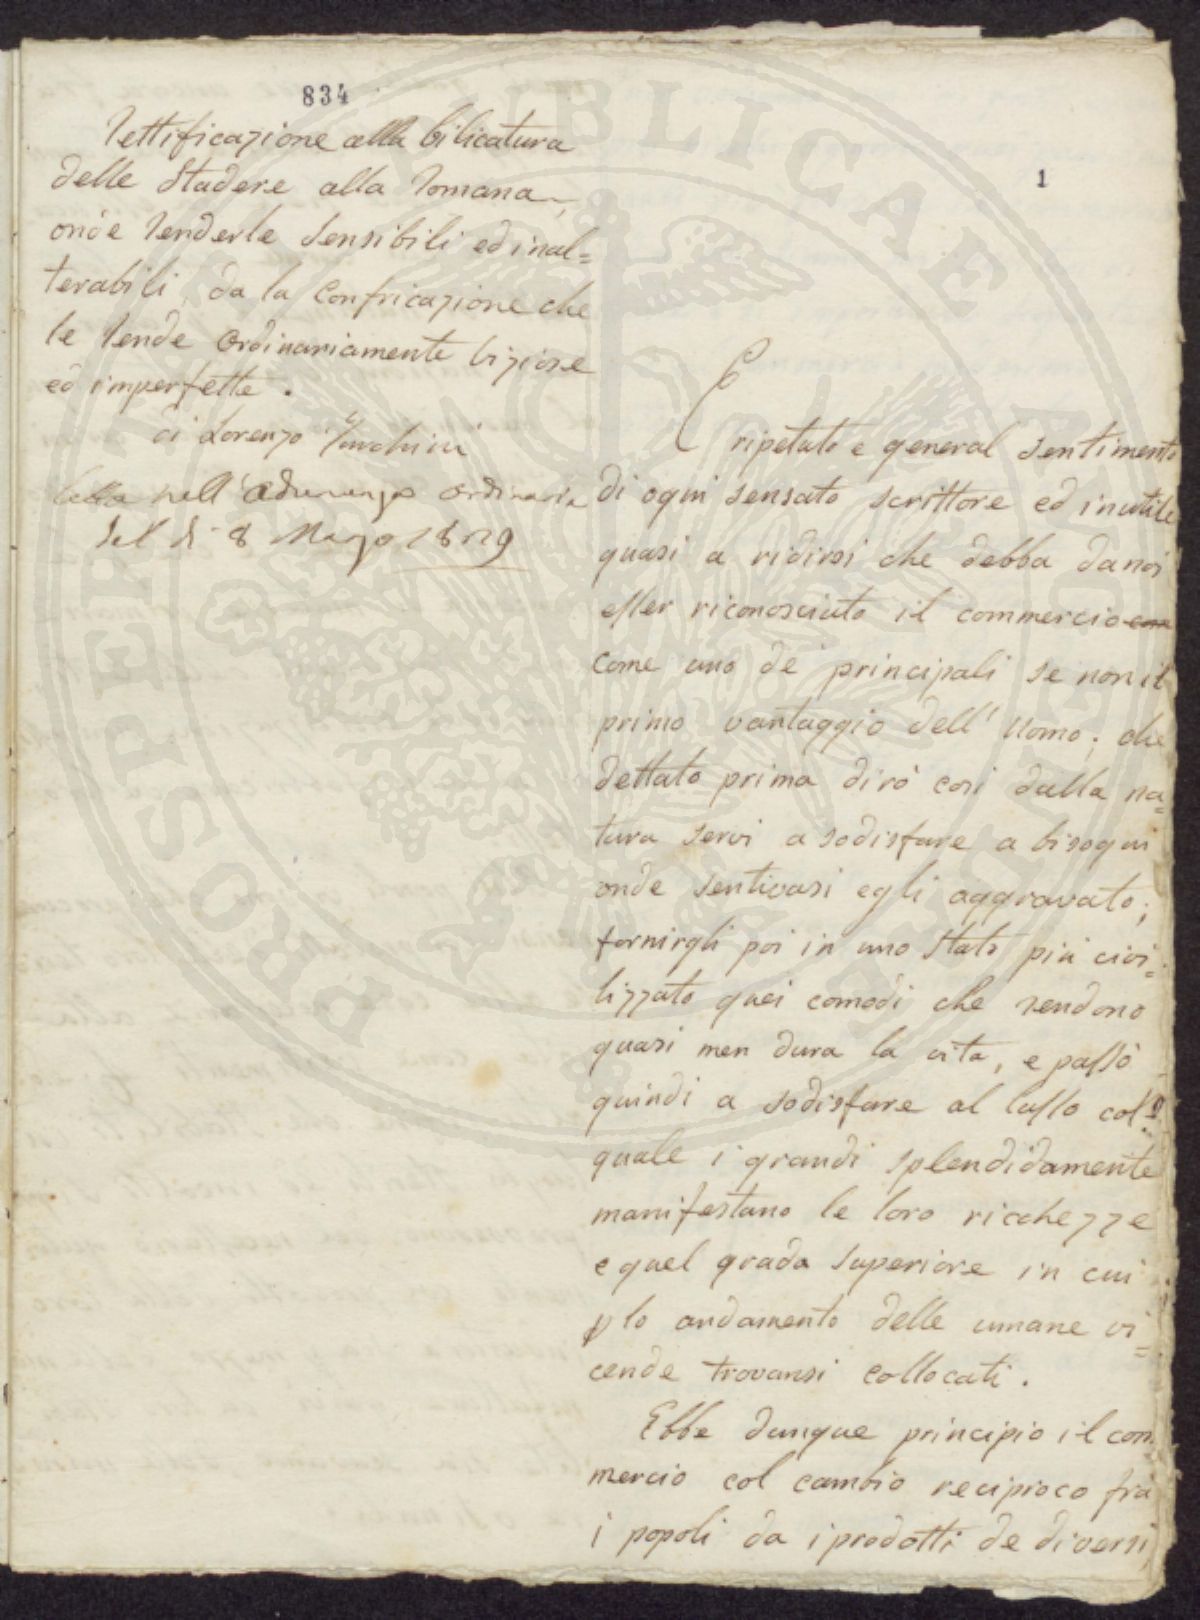 834
Rettificazione alla bilicatura
delle Stadere alla Romana,
onde renderle sensibili ed inal=
terabili da la Confricazione che
le rende Ordinariamente viziose
ed imperfette.
di Lorenzo Turchini
Letta nell'Adunanza ordinaria
del dì 8 Marzo 1829
1
È ripetuto e general sentimento
di ogni sensato scrittore ed inutile
quasi a ridirsi che debba da noi
esser riconosciuto il commercio com
come uno de principali se non il
primo vantaggio dell'Uomo; che
dettato prima dirò così dalla na=
tura servì a sodisfare a bisogni
onde sentivasi egli aggravato;
fornirgli poi in uno Stato più civi=
lizzato quei comodi che rendono
quasi men dura la vita, e passò
quindi a sodisfare al lusso col
quale i grandi splendidamente
manifestano le loro ricchezze
e quel grado superiore in cui
p lo andamento delle umane vi=
cende trovansi collocati.
Ebbe dunque principio il com
mercio col cambio reciproco fra
i popoli da i prodotti de diversi
PROSPERITATI PUBLICAE AUGENDAE